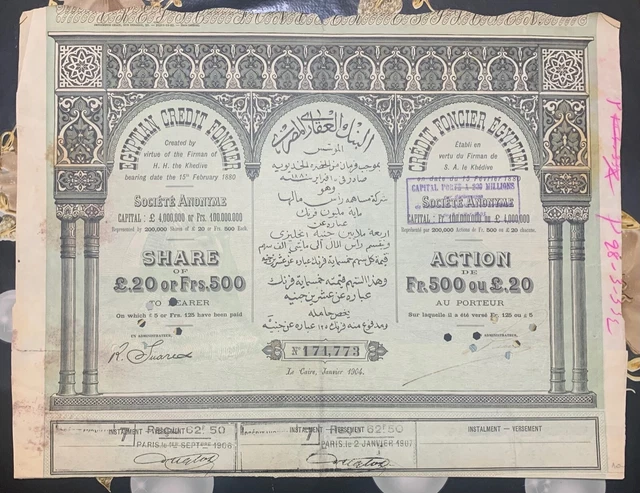 EGYPTIAN CREDIT FONCIER
Created by
virtue of the Firman of
H. H. the Khedive
bearing date the 15th February 1880
SOCIÉTÉ ANONYME
CAPITAL : £ 4,000,000 or Frs. 100,000,000
Represented by 200,000 Shares of £.20 or Frs. 500 Each.
SHARE
OF
£.20 or Frs.500
TO BEARER
On which £ 5 or Frs. 125 have been paid
UN ADMINISTRATEUR,
البنك العقاري المصري
بموجب فرمان من الحضرة الخديوية
وهو
شركة مساهمة راس مالها
مائة مليون فرنك
عبارة عن
اربعة ملايين جنيه انجليزي
وينقسم راس المال الى مايتي الف سهم
قيمة كل سهم خمسماية فرنك عبارة عن عشرين جنيه
وهذا السهم قيمته خمسماية فرنك
عبارة عن عشرين جنيه
يخص حامله
ومدفوع منه فرنك ١٢٥ عبارة عن جنيه
No 171,773
Le Caire, Janvier 1904.
CRÉDIT FONCIER ÉGYPTIEN
Établi en
vertu du Firman de
S. A. le Khédive
en date du 15 Février 1880
CAPITAL PORTÉ A 200 MILLIONS
SOCIÉTÉ ANONYME
CAPITAL : Fr. 100,000,000 ou £ 4,000,000
Représenté par 200,000 Actions de Fr. 500 ou £.20 chacune.
ACTION
DE
Fr. 500 ou £.20
AU PORTEUR
Sur laquelle il a été versé Fr. 125 ou £ 5
UN ADMINISTRATEUR,
INSTALMENT — VERSEMENT
Reçu 62f 50
PARIS, le 1er SEPTBRE 1906
INSTALMENT — VERSEMENT
Reçu 62f 50
PARIS, le 2 JANVIER 1907
INSTALMENT — VERSEMENT